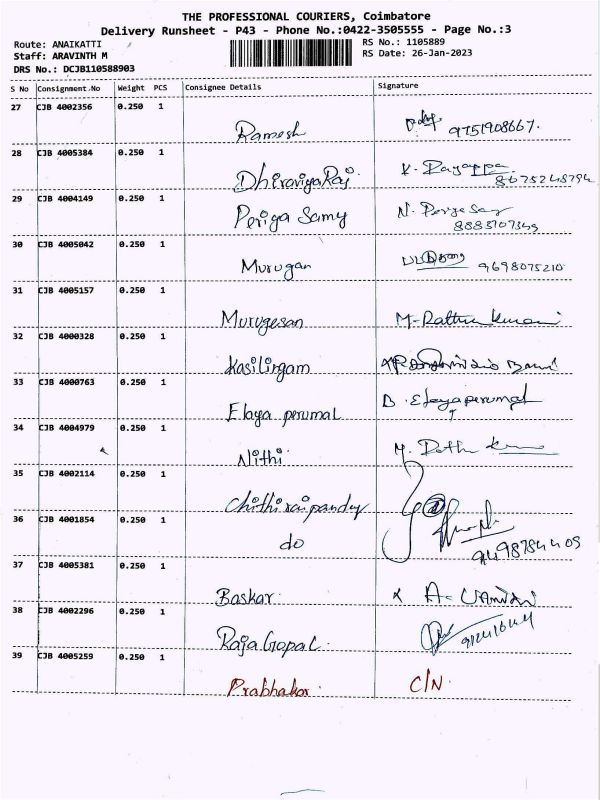 THE PROFESSIONAL COURIERS, Coimbatore
Delivery Runsheet - P43 - Phone No.:0422-3505555 - Page No.:3
Route: ANAIKATTI
RS No.: 1105889
Staff: ARAVINTH M
RS Date: 26-Jan-2023
DRS No.: DCJB110588903
S No Consignment.No Weight PCS Consignee Details Signature
27 CJB 4002356 0.250 1
Ramesh 9751908667.
28 CJB 4005384 0.250 1
DhiraviyaRaj K. Rayappa
8675248794
29 CJB 4004149 0.250 1
Periya Samy N. Periya Samy
30 CJB 4005042 0.250 1
Murugan 9698075210
31 CJB 4005157 0.250 1
Murugesan
32 CJB 4000328 0.250 1
Kasilingam
33 CJB 4000763 0.250 1
Elaya perumal D. Elayaperumal
34 CJB 4004979 0.250 1
Nithi
35 CJB 4002114 0.250 1
Chithiraipandy
36 CJB 4001854 0.250 1
do
9498784409
37 CJB 4005381 0.250 1
Baskar
38 CJB 4002296 0.250 1
RajaGopal
39 CJB 4005259 0.250 1
Prabhakar C/N